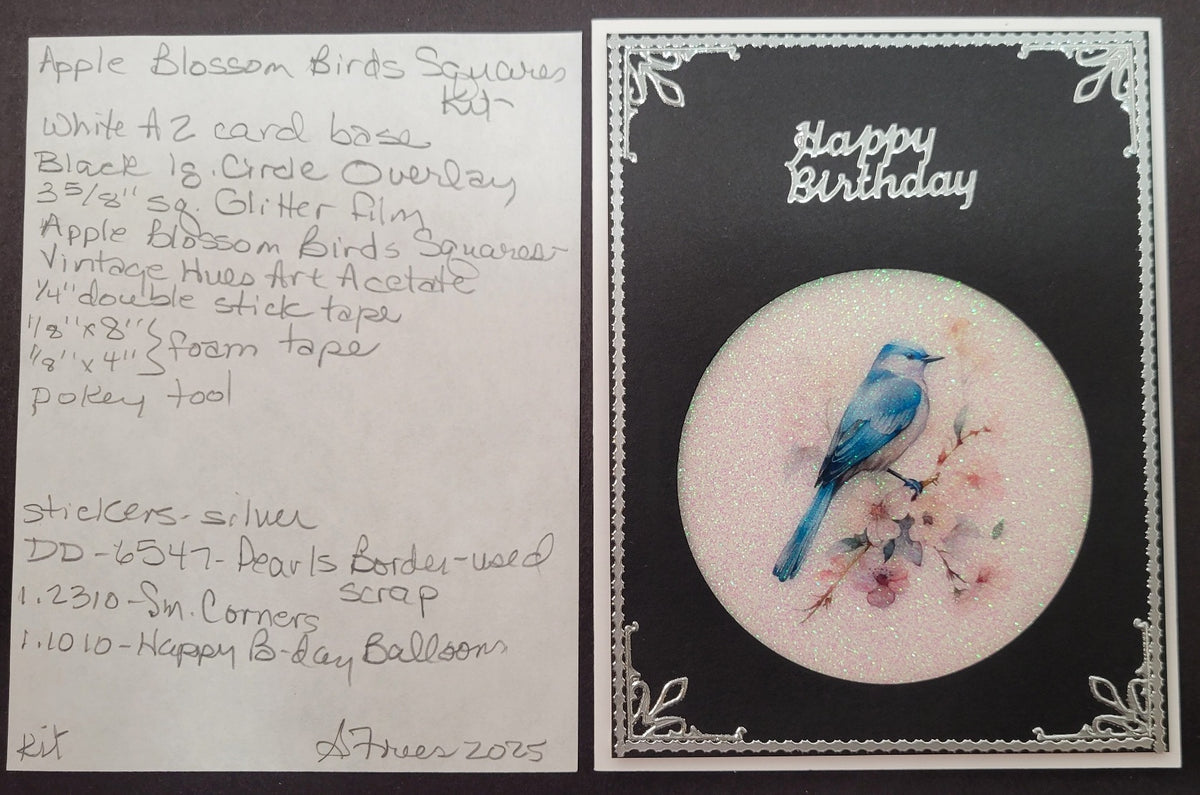 Apple Blossom Birds Squares
Kit
White A2 card base
Black lg. Circle Overlay
3 5/8" sq. Glitter film
Apple Blossom Birds Squares-
Vintage Hues Art Acetate
1/4" double stick tape
1/8" x 8" } foam tape
1/8" x 4"
pokey tool
stickers-silver
DD-6547-Pearls Border-used
scrap
1.2310-Sm. Corners
1.1010-Happy B-day Balloons
Kit
SFrees 2025
Happy
Birthday